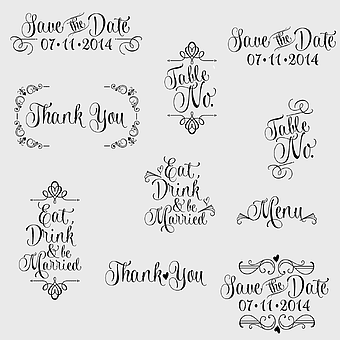 Save the Date
07·11·2014
Table
No.
Save the Date
07·11·2014
Thank You
Table
No.
Eat,
Drink
& be
Married
Eat,
Drink
& be
Married
Menu
Thank You
Save the Date
07·11·2014